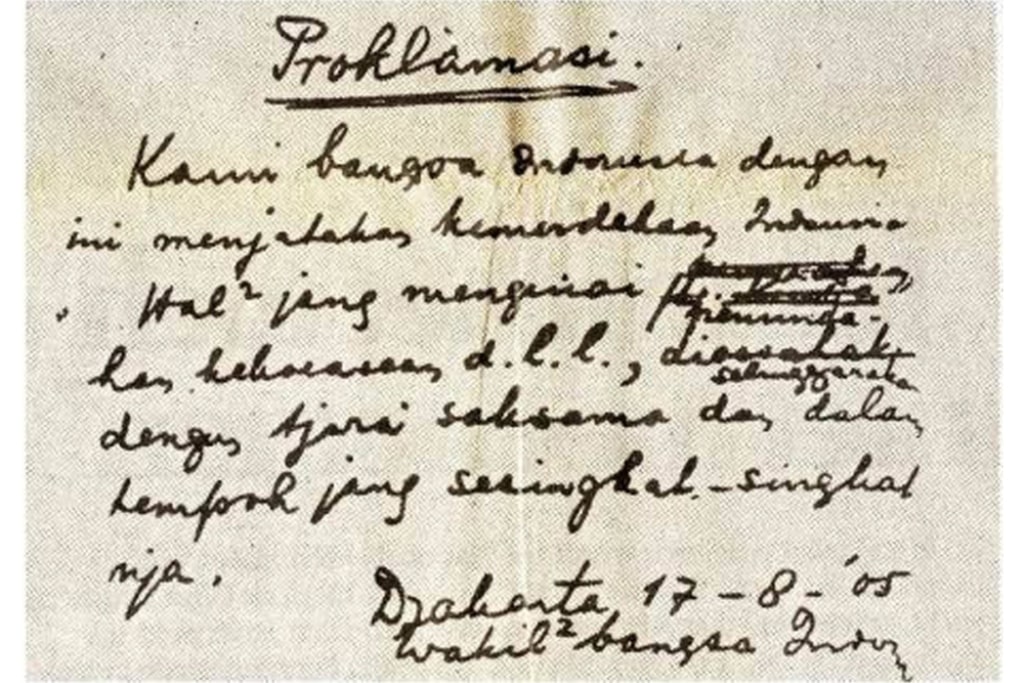 Proklamasi.
Kami bangsa Indonesia dengan
ini menjatakan kemerdekaan Indonesia
Hal² jang mengenai
pemindah-
kan kekoeasaan d.l.l., dioesahak
selenggarakan
dengan tjara saksama dan dalam
tempoh jang sesingkat-singkat
nja.
Djakarta, 17-8-'05
Wakil² bangsa Indon